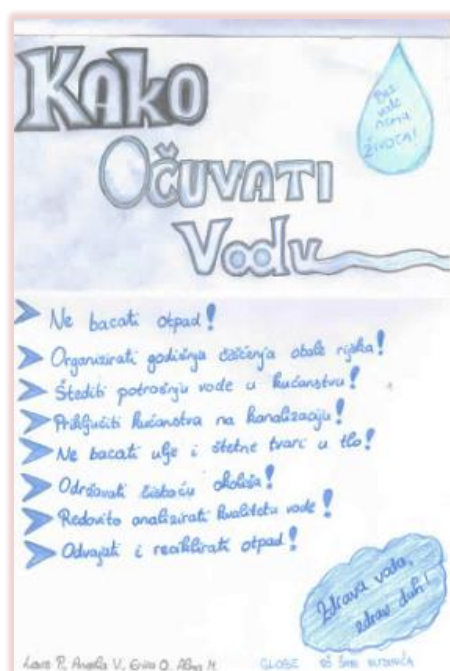 Kako
Očuvati
Vodu
Bez
vode
nema
ŽIVOTA!
Ne bacati otpad!
Organizirati godišnja čišćenja obale rijeka!
Štediti potrošnju vode u kućanstvu!
Priključiti kućanstva na kanalizaciju!
Ne bacati ulje i štetne tvari u tlo!
Održavati čistoću okoliša!
Redovito analizirati kvalitetu vode!
Odvajati i reciklirati otpad!
Zdrava voda,
zdrav duh!
P. V. O. GLOBE OŠ